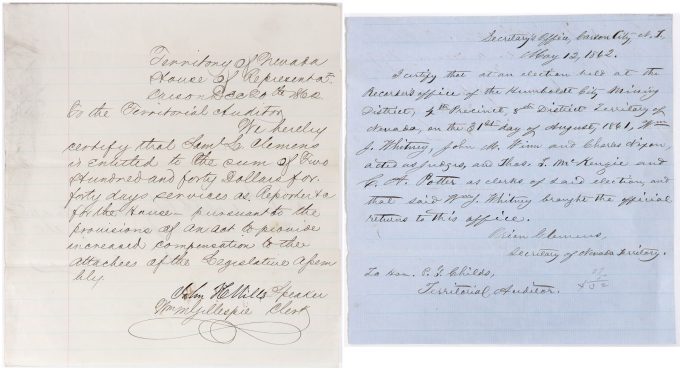 Territory of Nevada
House of Representat.
Carson Dec 20th 1862
To the Territorial Auditor
We hereby
certify that Saml L. Clemens
is entitled to the sum of Two
Hundred and forty Dollars for
forty days services as Reporter &c
for the House — pursuant to the
provisions of An act to provide
increased compensation to the
attachees of the Legislative Assem
bly
John H Mills Speaker
Wm M Gillespie Clerk
Secretary's Office, Carson City N. T.
May 12, 1862.
I certify that at an election held at the
Recorder's office of the Humboldt City Mining
District, 4th Precinct, 8th District Territory of
Nevada, on the 31st day of August, 1861, Wm
J. Whitney, John M. Winn and Charles Nixon,
acted as judges, and Thos. L. McKenzie and
A. Potter as clerks of said election, and
that said Wm J. Whitney brought the official
returns to this office.
Orion Clemens,
Secretary of Nevada Territory.
To Hon. P. G. Childs,
Territorial Auditor.